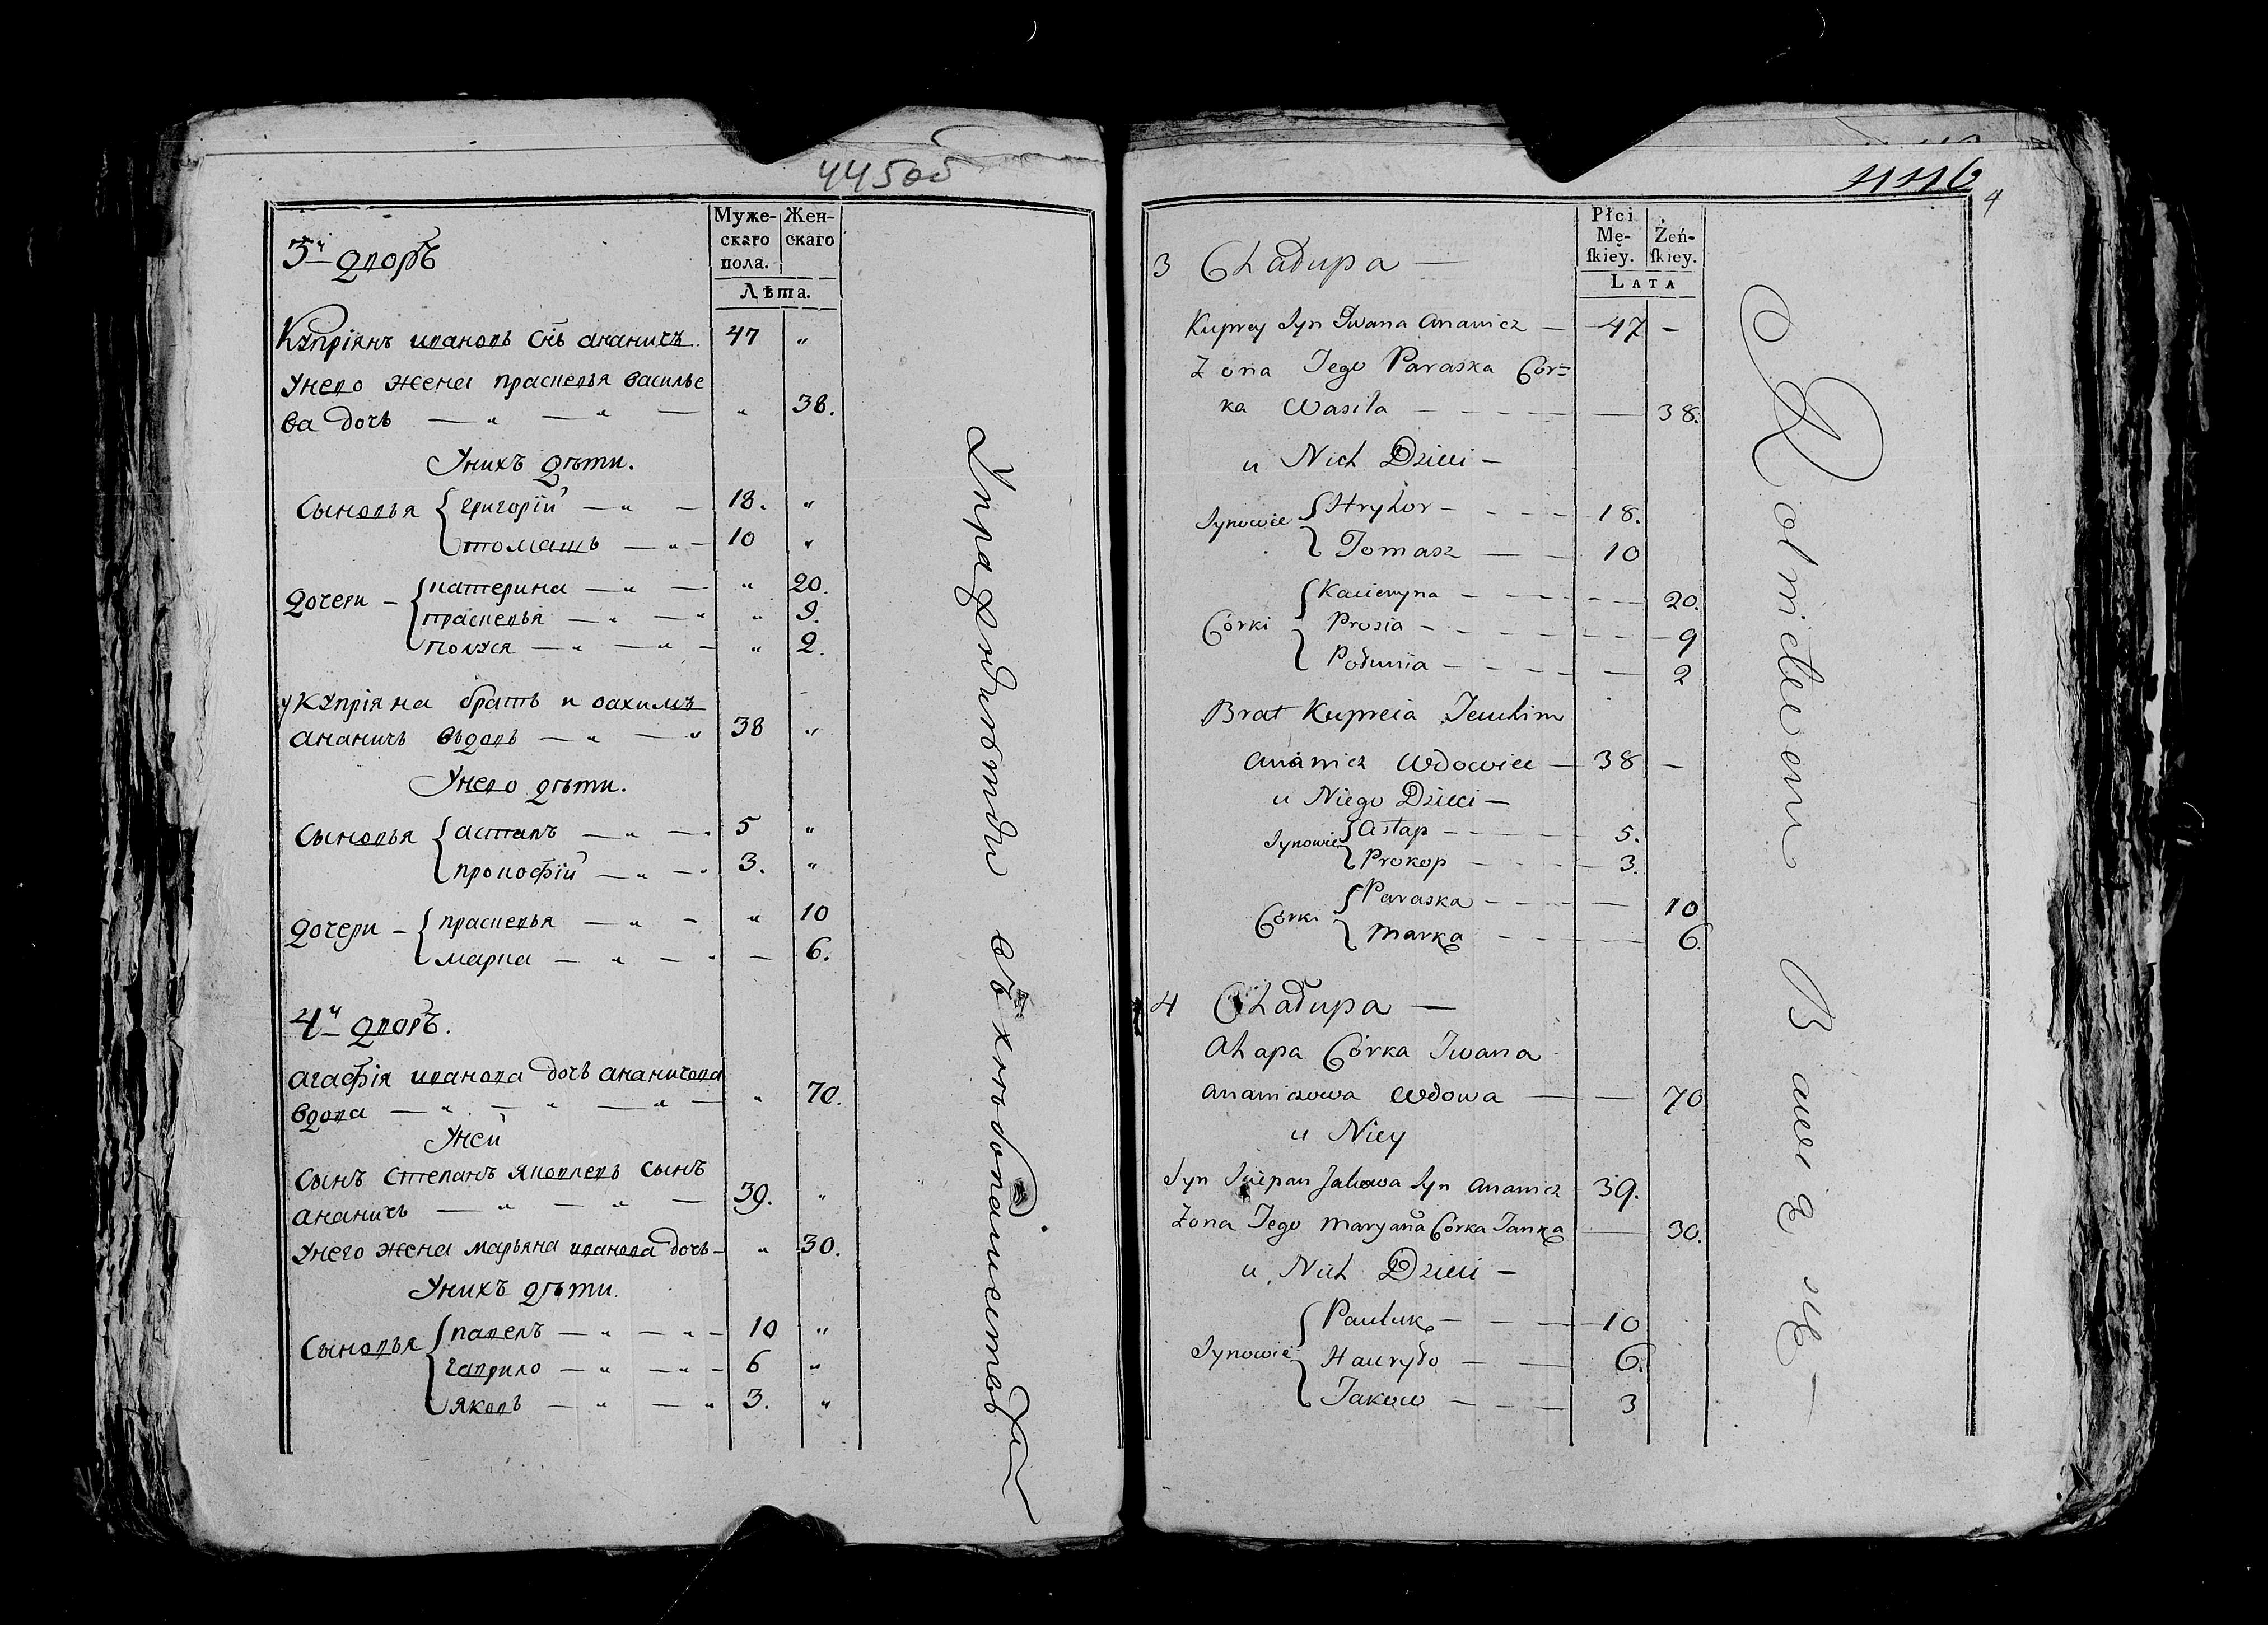 445об
Муже-
скаго
пола.
Жен-
скаго
Лѣта.
3й дворъ
Купріянъ ивановъ снъ ананичъ. 47 "
Унего жена прасковья василье
ва дочъ — " — " — " 38.
Унихъ дѣти.
Сыновья { григорій — " — 18. "
томашъ — " — 10 "
Дочери — { катерина — " — " 20.
прасковья — " — " " 9.
полуся — " — " — " 2.
у Купріяна братъ иоахимъ
ананичъ вѣдовъ — " — " 38 "
Унего дѣти.
Сыновья { астапъ — " — " 5 "
прокофій — " — " 3. "
Дочери — { прасковья — " — " 10
марка — " — " — 6.
4й дворъ.
агафія иванова дочъ ананичова
вдова — " — " — " — " 70.
Уней
Сынъ степанъ яковлевъ сынъ
ананичъ — " — " — 39. "
Унего жена марьяна иванова дочъ — " 30.
Унихъ дѣти.
Сыновья { павелъ — " — " — 10 "
гаврило — " — " — 6 "
яковъ — " — " 3. "
446
4
Płci
Mę-
ſkiey.
Żeń-
ſkiey.
LATA
3 Chałupa —
Kuprey Syn Iwana Ananicz — 47 —
Zona Jego Paraska Cor=
ka Wasila — — — 38.
u Nich Dzieci —
Synowie { Hryhor — — — 18.
Tomasz — — 10
Córki { Kacieryna — — — 20.
Prosia — — — 9
Połunia — — — 2
Brat Kupreia Jeuchim
Ananicz Wdowiec — 38 —
u Niego Dzieci —
Synowie { Astap — — — 5.
Prokop — — — 3.
Corki { Paraska — — — 10
Marka — — — 6.
4 Chałupa —
Ahapa Córka Iwana
Ananiczowa Wdowa — — 70
u Niey
Syn Sciepan Jakowa Syn Ananicz 39.
Zona Jego Maryana Córka Janka — 30.
u Nich Dzieci —
Synowie { Pauluk — — — 10
Hauryło — — 6.
Jakow — — — 3